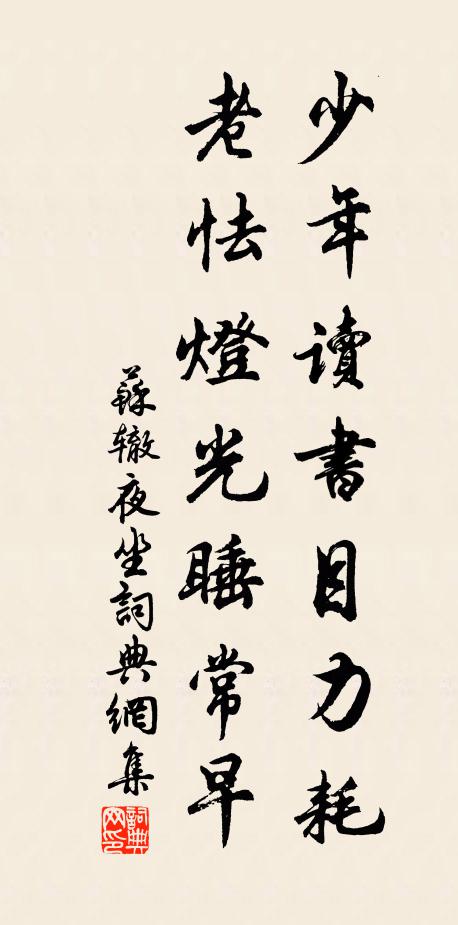 少年讀書目力耗
老怯燈光睡常早
蘇轍夜坐詞典網集
詞典网印